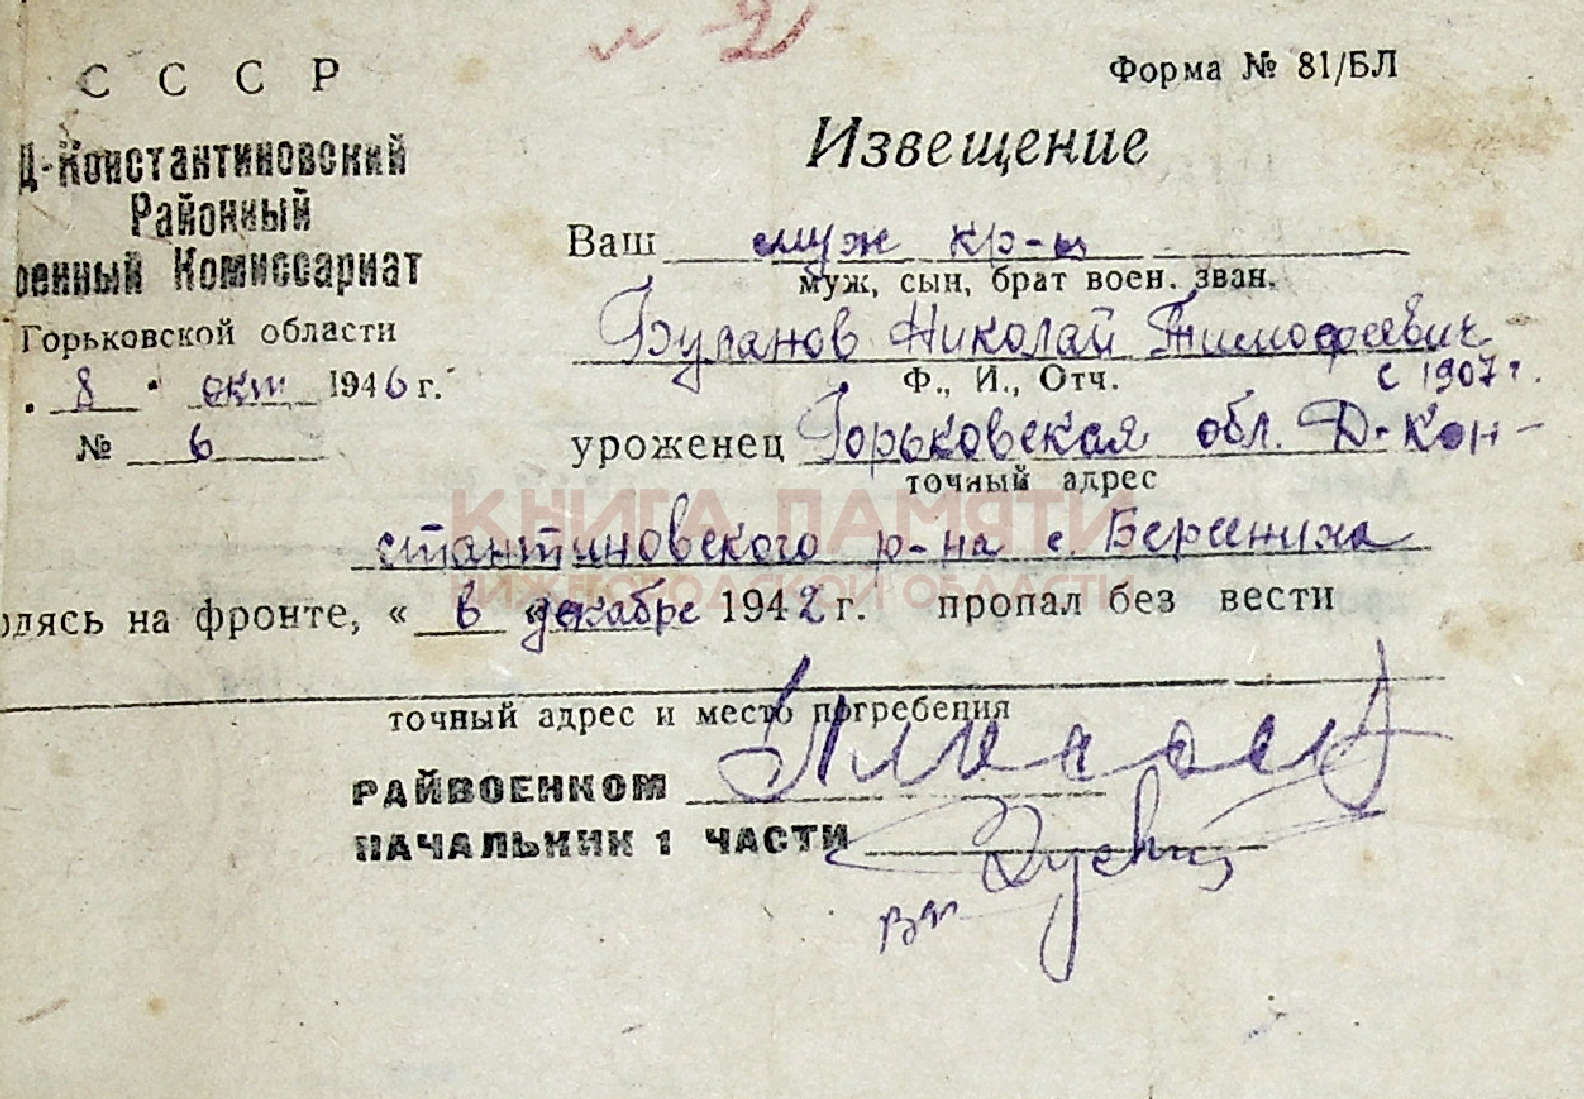 и 2
С С С Р
Форма № 81/БЛ
Д-Константиновский
Районный
оенный Комиссариат
Горьковской области
8 окт 1946 г.
№ 6
Извещение
Ваш муж кр-ц
муж, сын, брат воен. зван.
Буланов Николай Тимофеевич
Ф., И., Отч. с 1907 г.
уроженец Горьковская обл. Д-Кон-
точный адрес
стантиновского р-на с.
КНИГА ПАМЯТИ
НИЖЕГОРОДСКОЙ ОБЛАСТИ
одясь на фронте, « в « декабре 1942 г. пропал без вести
точный адрес и место погребения
РАЙВОЕНКОМ
НАЧАЛЬНИК 1 ЧАСТИ